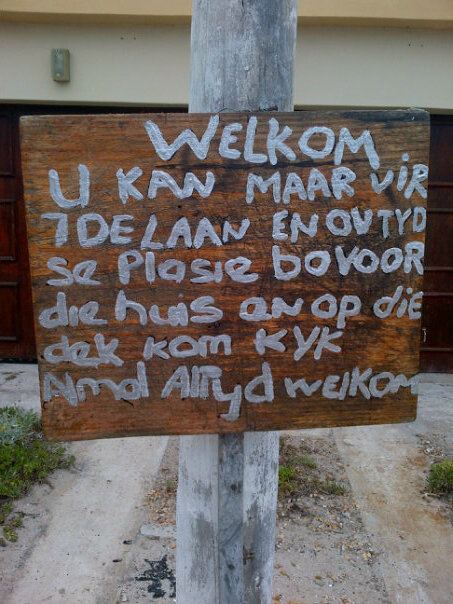 WELKOM
U KAN MAAR VIR
7DELAAN EN OUTYD
se Plasie bovoor
die huis an op die
dek kom KYK
Altyd welkom